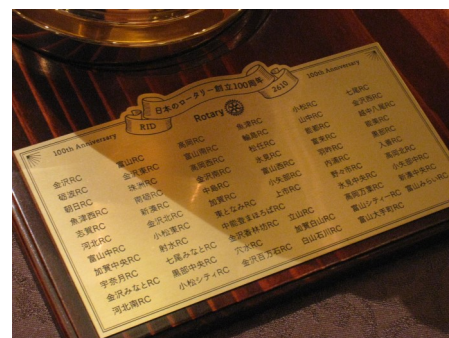 日本のロータリー創立100周年
RID 2610
100th Anniversary
Rotary
100th Anniversary
金沢RC
砺波RC
朝日RC
魚津西RC
志賀RC
河北RC
富山中RC
加賀中央RC
宇奈月RC
金沢みなとRC
河北南RC
富山RC
金沢東RC
珠洲RC
南砺RC
新湊RC
金沢北RC
小松東RC
射水RC
七尾みなとRC
黒部中央RC
小松シティRC
高岡RC
富山南RC
高岡西RC
金沢南RC
中島RC
加賀RC
東となみRC
中能登まほろばRC
金沢香林坊RC
穴水RC
金沢百万石RC
魚津RC
輪島RC
松任RC
氷見RC
富山西RC
小矢部RC
上市RC
立山RC
加賀白山RC
白山石川RC
小松RC
山中RC
能都RC
羽咋RC
内灘RC
野々市RC
氷見中央RC
高岡万葉RC
富山シティーRC
富山大手町RC
七尾RC
金沢西RC
越中八尾RC
能美RC
黒部RC
入善RC
高岡北RC
新湊中央RC
富山みらいRC